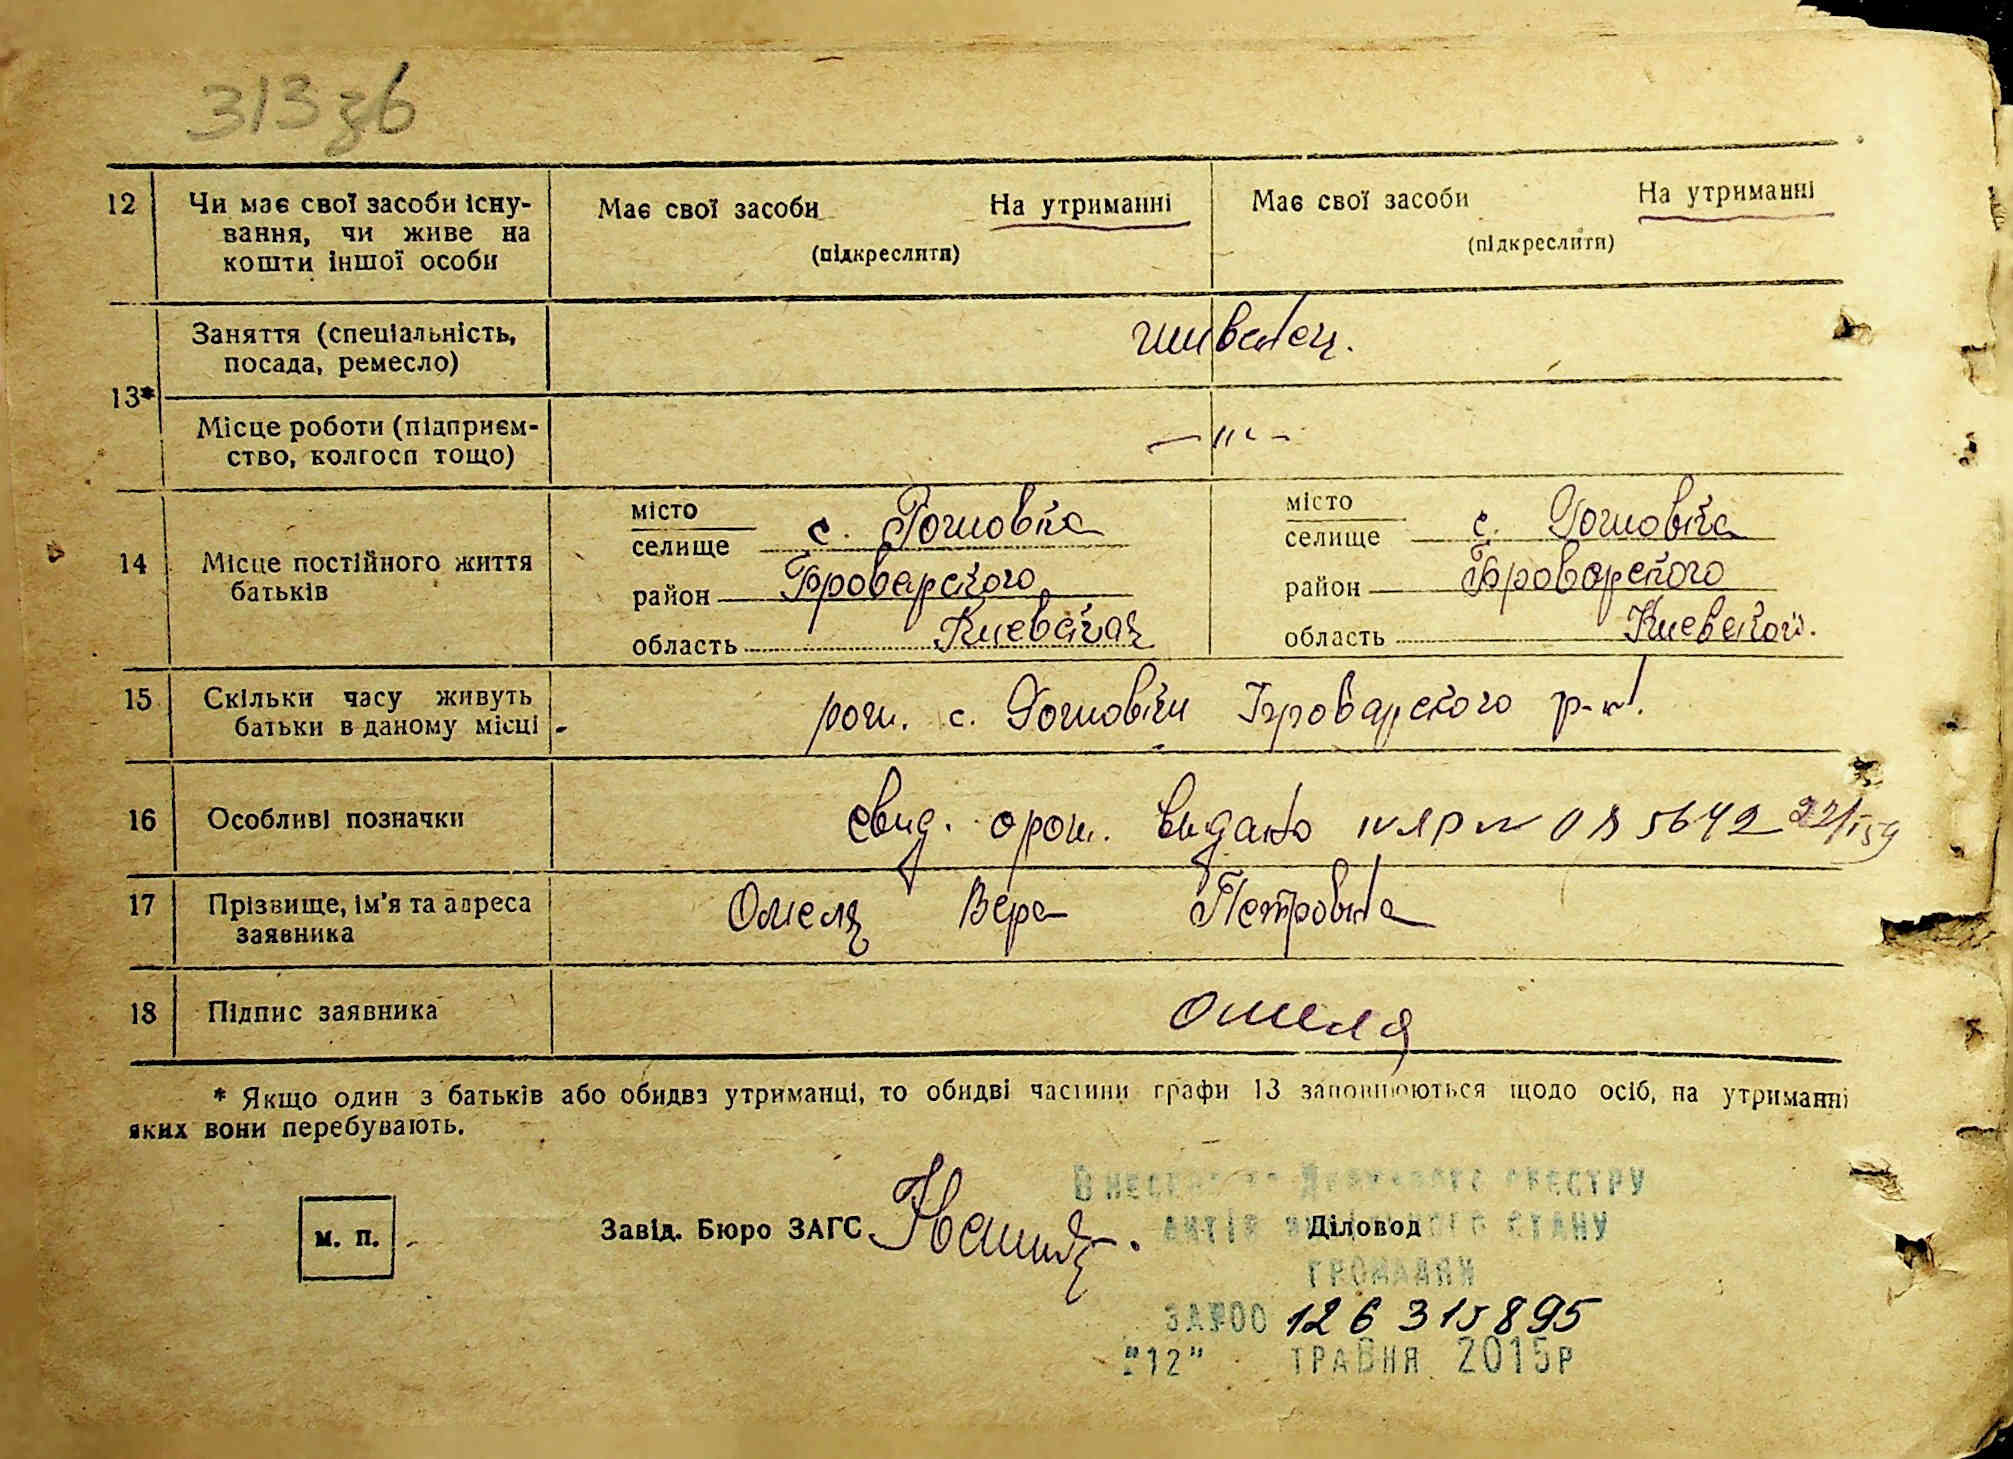 313 зв
12 Чи має свої засоби існу-
вання, чи живе на
кошти іншої особи
Має свої засоби На утриманні
(підкреслити)
Має свої засоби На утриманні
(підкреслити)
13*
Заняття (спеціальність,
посада, ремесло)
Місце роботи (підприєм-
ство, колгосп тощо)
— " —
14 Місце постійного життя
батьків
місто
селище с. Гоголовка
район Броварского
область Киевская
місто
селище с.
район Броварского
область Киевской.
15 Скільки часу живуть
батьки в даному місці
с. Броварского р-н.
16 Особливі позначки
свид. о рож. видано
17 Прізвище, ім'я та адреса
заявника
Омеля Вера Петровна
18 Підпис заявника
Омеля
* Якщо один з батьків або обидва утриманці, то обидві частини графи 13 заповнюються щодо осіб, на утриманні
яких вони перебувають.
м. п.
Завід. Бюро ЗАГС
Діловод
Внесено до Державного реєстру
актів цивільного стану
громадян
за №00 126 315 895
"12" травня 2015р